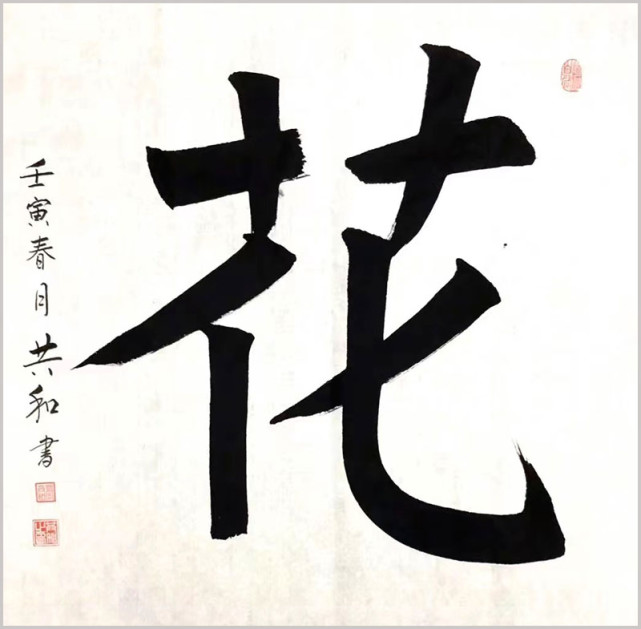 花
壬寅春月共和書